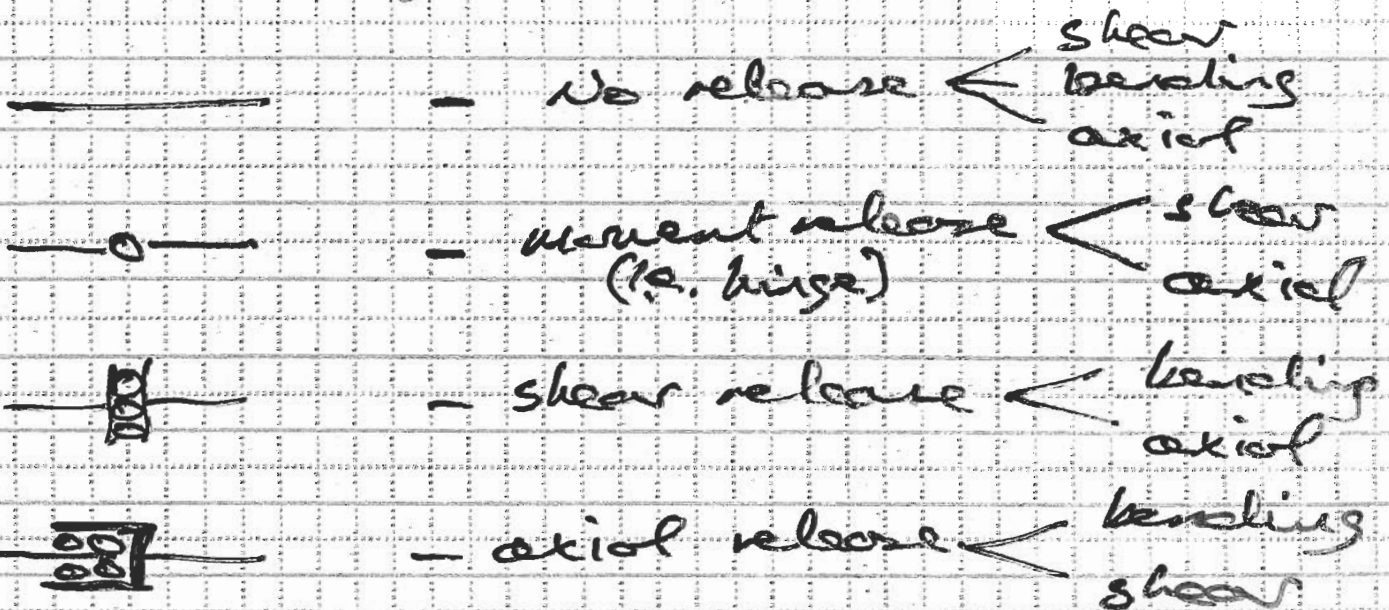 shear
- No release < bending
axial
- moment release < shear
(i.e. hinge) axial
- shear release < bending
axial
- axial release < bending
shear